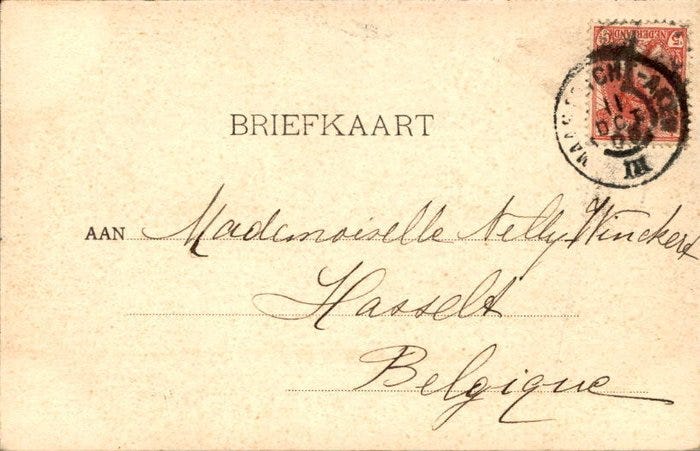 5
NEDERLAND
MAASTRICHT-
11 OCT
III
BRIEFKAART
AAN Mademoiselle Nelly Winckers
Hasselt
Belgique